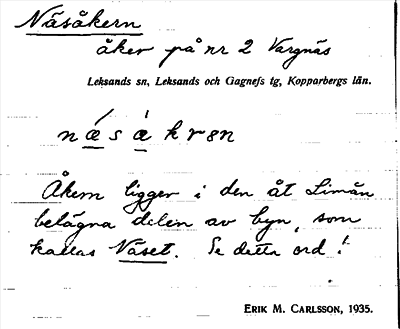 Näsåkern
åker på nr 2 Vargnäs
Leksands sn, Leksands och Gagnefs tg, Kopparbergs län.
næ̀sa̤kren
Åkern ligger i den åt Limån
belägna delen av byn, som
kallas Näset. Se detta ord!
ERIK M. CARLSSON, 1935.